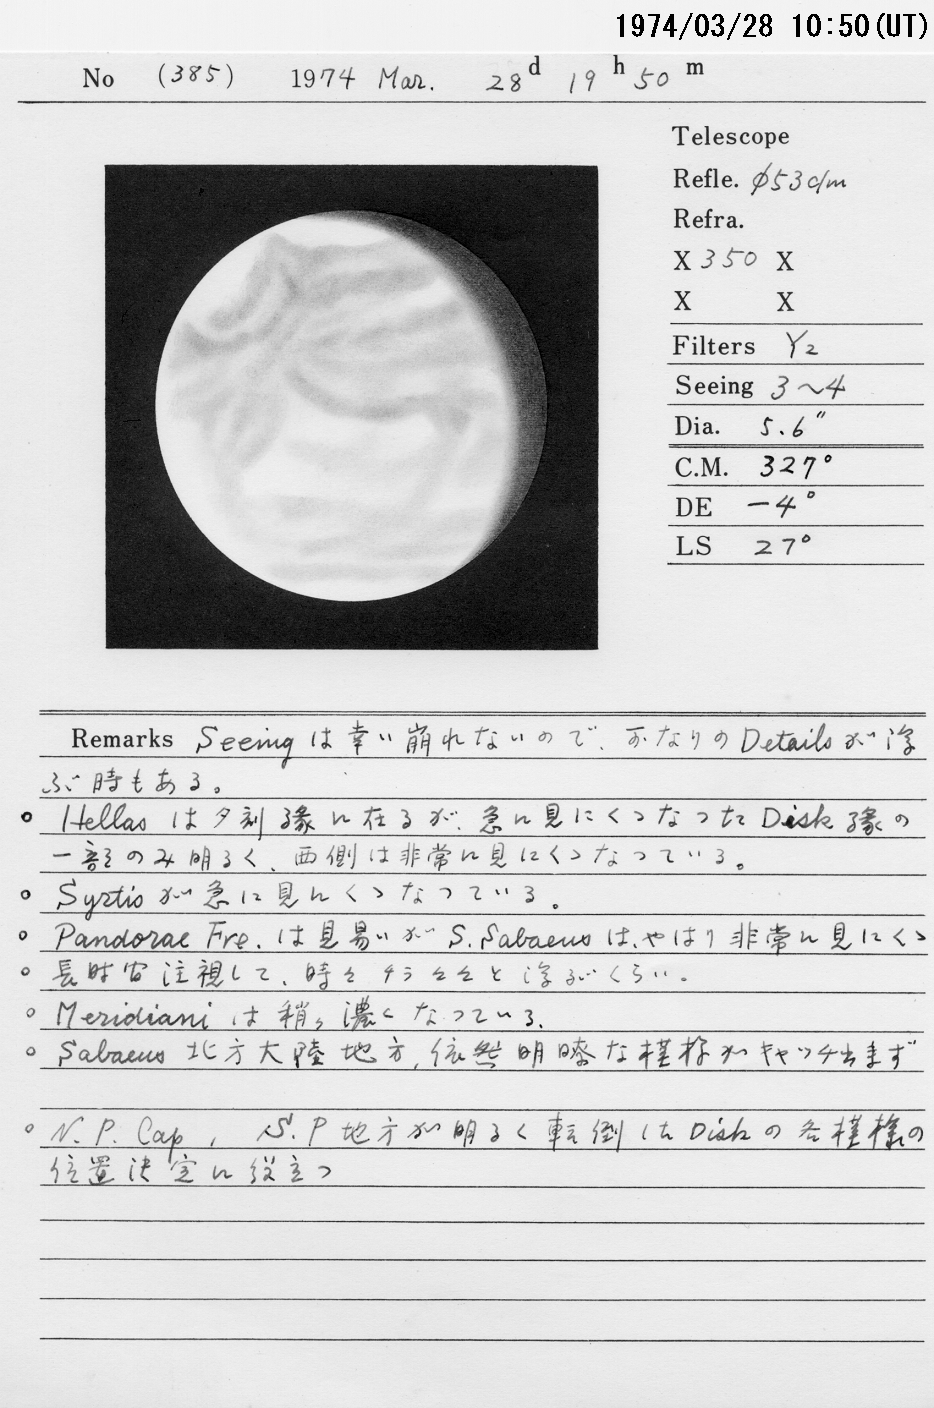 1974/03/28 10:50(UT)
No (385) 1974 Mar. 28d 19h 50m
Telescope
Refle. φ53cm
Refra.
X 350 X
X X
Filters Y2
Seeing 3～4
Dia. 5.6″
C.M. 327°
DE －4°
LS 27°
Remarks Seeingは幸い崩れないので、かなりのDetailsが浮
ぶ時もある。
○ Hellasは夕刻縁に在るが、急に見にくくなったDisk縁の
一部のみ明るく、西側は非常に見にくくなっている。
○ Syrtisが急に見にくくなっている。
○ Pandorae Fre.は見易いがS.Sabaeusは、やはり非常に見にくく
○ 長時間注視して、時々チラとと浮ぶくらい。
○ Meridianiは稍々濃くなっている。
○ Sabaeus 北方大陸地方、依然明瞭な模様がキャッチ出来ず
○ N.P.Cap, S.P地方が明るく転倒したDiskの各模様の
位置決定に役立つ